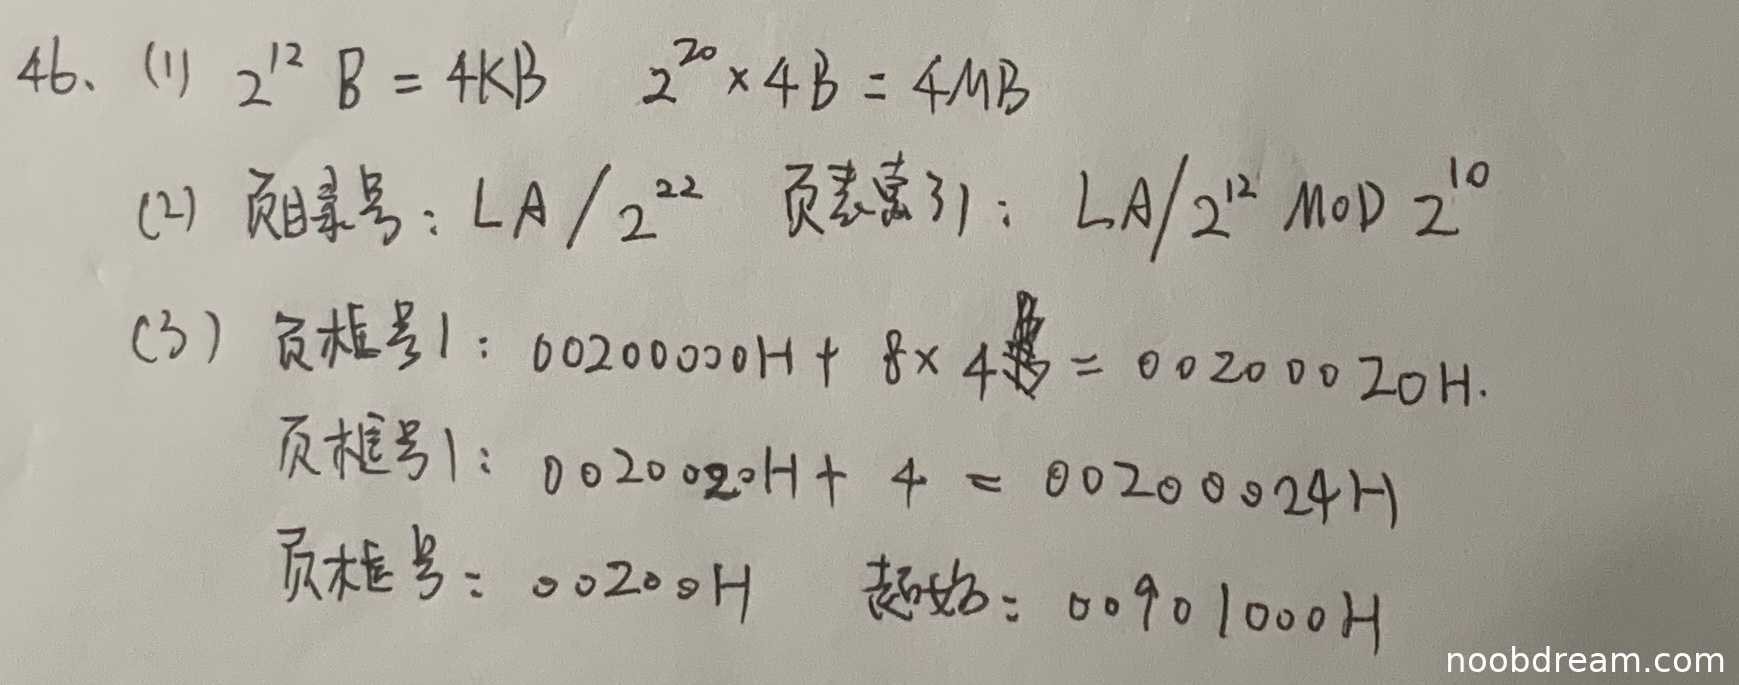 46、(1) 2^12 B = 4KB 2^20 × 4B = 4MB
(2) 页目录号: LA / 2^22 页表索引: LA/2^12 MOD 2^10
(3) 页框号1: 00200000H + 8×4 = 00200020H.
页框号1: 00200020H + 4 = 00200024H
页框号: 00200H 起始: 00901000H
noobdream.com